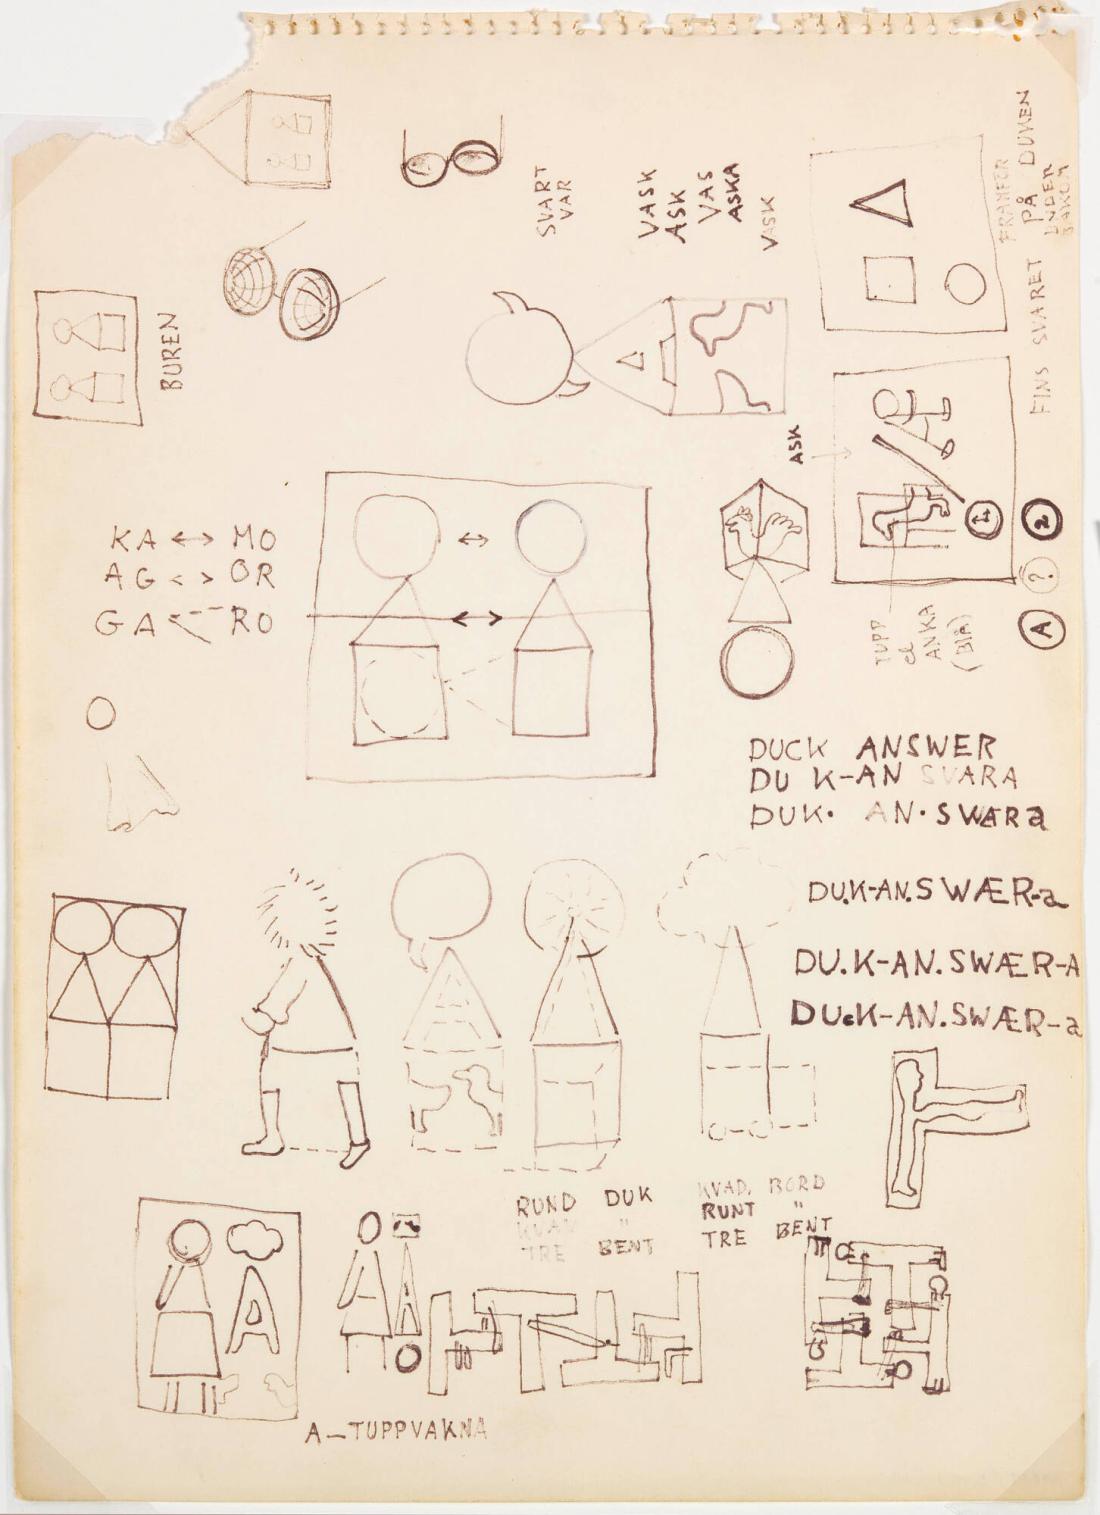 SVART
VAR
VASK
ASK
VAS
ASKA
VASK
FRAMFÖR
PÅ DUKEN
UNDER
BAKOM
FINS SVARET
BUREN
ASK
KA ↔ MO
AG < > ÖR
GA RO
1
2
?
A
TUPP
el
ANKA
(BLÅ)
DUCK ANSWER
DU K-AN SVARA
DUK· AN·SWARa
DU.K-AN.SWÆR-a
DU.K-AN.SWÆR-A
DUcK-AN.SWÆR-a
RUND DUK
KVAD "
TRE BENT
KVAD. BORD
RUNT "
TRE BENT
A
A
A–TUPPVAKNA